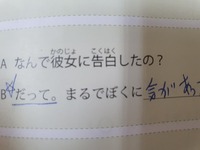 A なんで彼女に告白したの？
かのじょ こくはく
B だって。まるでぼくに気があっ